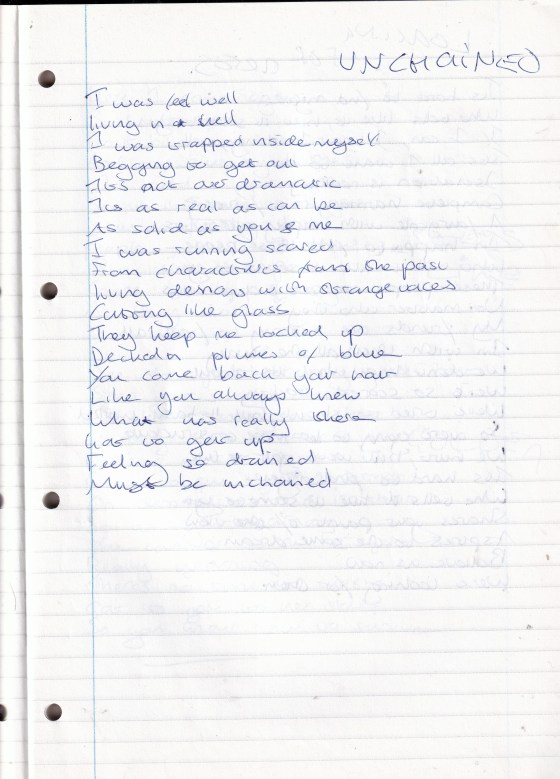 UNCHAINED
I was feel well
living n a shell
I was trapped inside myself
Begging to get out
Its not over dramatic
Its as real as can be
As solid as you & me
I was running scared
From characters from the past
living demons with strange voices
Cutting like glass
They keep me locked up
Decked in plumes of blue
You came back your
Like you always knew
What was really there
got to get up
Feeling so drained
Must be unchained